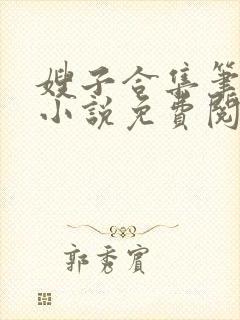 嫂子合集筆
小說免費閱
郭秀賓